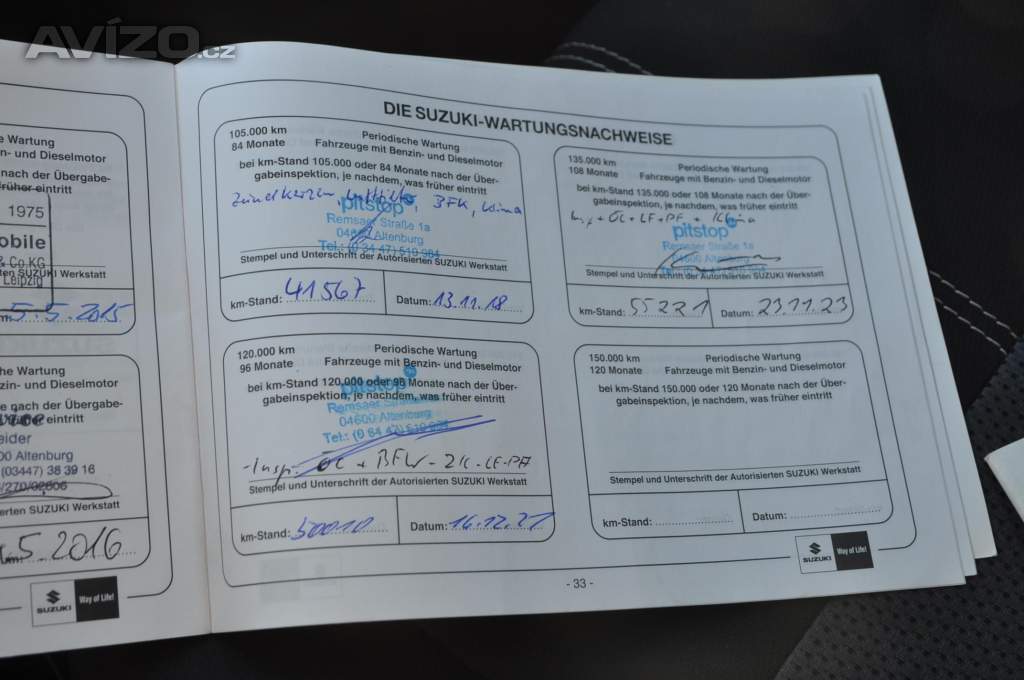 AVÍZO.cz
e Wartung
n- und Dieselmotor
nach der Übergabe-
früher eintritt
1975
obile
& Co KG
Leipzig
rten SUZUKI Werkstatt
5.5.2015
he Wartung
zin- und Dieselmotor
e nach der Übergabe-
eintritt
eider
00 Altenburg
(03447) 38 39 16
/270/02606
erten SUZUKI Werkstatt
.5.2016
SUZUKI
Way of Life!
DIE SUZUKI-WARTUNGSNACHWEISE
105.000 km
84 Monate
Periodische Wartung
Fahrzeuge mit Benzin- und Dieselmotor
bei km-Stand 105.000 oder 84 Monate nach der Über-
gabeinspektion, je nachdem, was früher eintritt
Zündkerzen, BFK, Klima
pitstop
Remsaer Straße 1a
04600 Altenburg
Tel.: (0 34 47) 510 984
Stempel und Unterschrift der Autorisierten SUZUKI Werkstatt
km-Stand: 41567
Datum: 13.11.18
120.000 km
96 Monate
Periodische Wartung
Fahrzeuge mit Benzin- und Dieselmotor
bei km-Stand 120.000 oder 96 Monate nach der Über-
gabeinspektion, je nachdem, was früher eintritt
pitstop
Remsaer Straße
04600 Altenburg
- Insp. ÖL + BFW - ZK - LF - PF
Stempel und Unterschrift der Autorisierten SUZUKI Werkstatt
km-Stand: 50010
Datum: 16.12.21
135.000 km
108 Monate
Periodische Wartung
Fahrzeuge mit Benzin- und Dieselmotor
bei km-Stand 135.000 oder 108 Monate nach der Über-
gabeinspektion, je nachdem, was früher eintritt
+ ÖL + LF + PF + Klima
pitstop
Remsaer Straße 1a
04600 Altenburg
Stempel und Unterschrift der Autorisierten SUZUKI Werkstatt
km-Stand: 55221
Datum: 23.11.23
150.000 km
120 Monate
Periodische Wartung
Fahrzeuge mit Benzin- und Dieselmotor
bei km-Stand 150.000 oder 120 Monate nach der Über-
gabeinspektion, je nachdem, was früher eintritt
Stempel und Unterschrift der Autorisierten SUZUKI Werkstatt
km-Stand:
Datum:
SUZUKI
Way of Life!
- 33 -